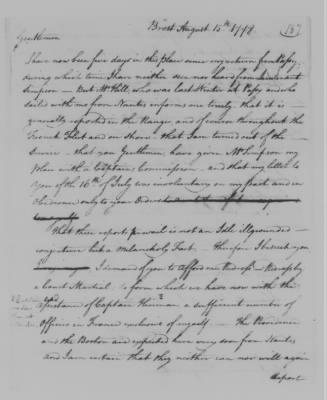 Brest August 15th 1778.
Gentlemen
I have now been five days in this place since my return from Passy
during which time I have neither seen nor heard from Lieutenant
Simpson — But Mr Hill, who was last Winter at Passy and who
sailed with me from Nantes informs me truly that it is
generally reported in the Ranger and of course throughout the
French Fleet and on shore — that I am turned out of the
Service — that you Gentlemen, have given Mr Simpson my
place with a Captains Commission — and that my letter to
you of the 16th of July was involuntary on my part and in
Obedience only to your Orders
That these reports prevail is not an Idle illgrounded
conjecture but a Melancholy Fact — therefore I beseech you
I demand of you to afford me Redress — Redress by
a Court Martial to form which we have now with the
assistance of Captain a sufficient number of
Officers in France exclusive of myself — The Providence
and the Boston are expected here very soon from Nantes
and I am certain that they neither can nor will again
depart